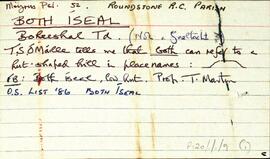 Pal. 52. ROUNDSTONE R.C. PARISH
BOTH ÍSEAL
Boheeshal Td.
T.S. Ó Máille tells me that Both can refer to a
hut-shaped hill in placenames:
FB: Both Íseal, low hut. Prof. T.
O.S. LIST '86 BOTH ÍSEAL
P120/1/9 (i)